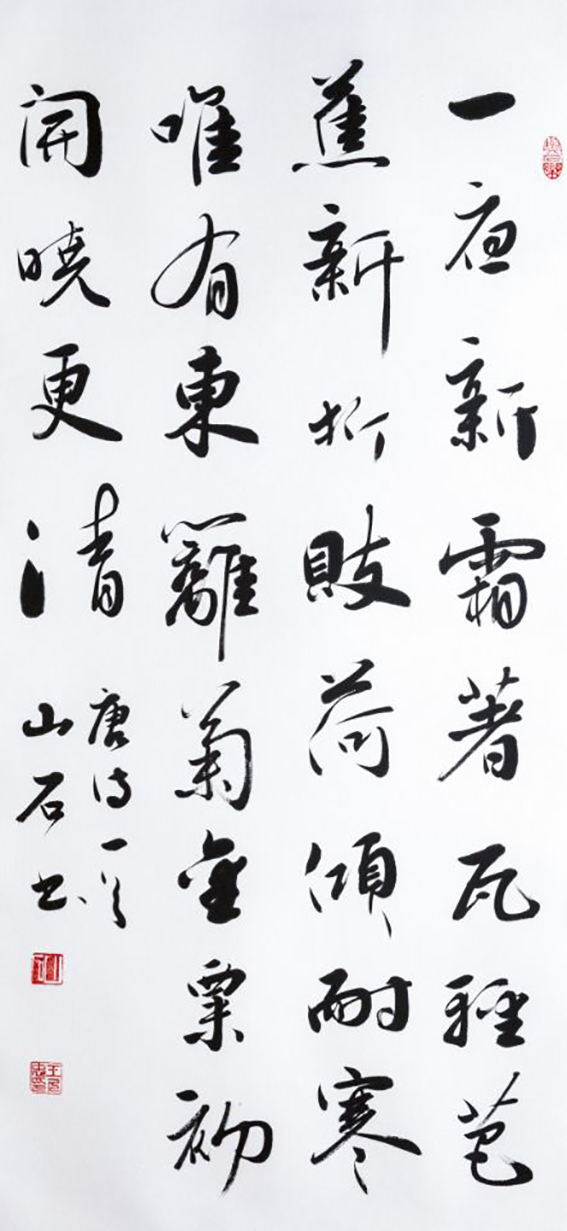 一夜新霜著瓦輕芭
蕉新折敗荷傾耐寒
唯有東籬菊金粟初
開曉更清
唐诗一首
山石书